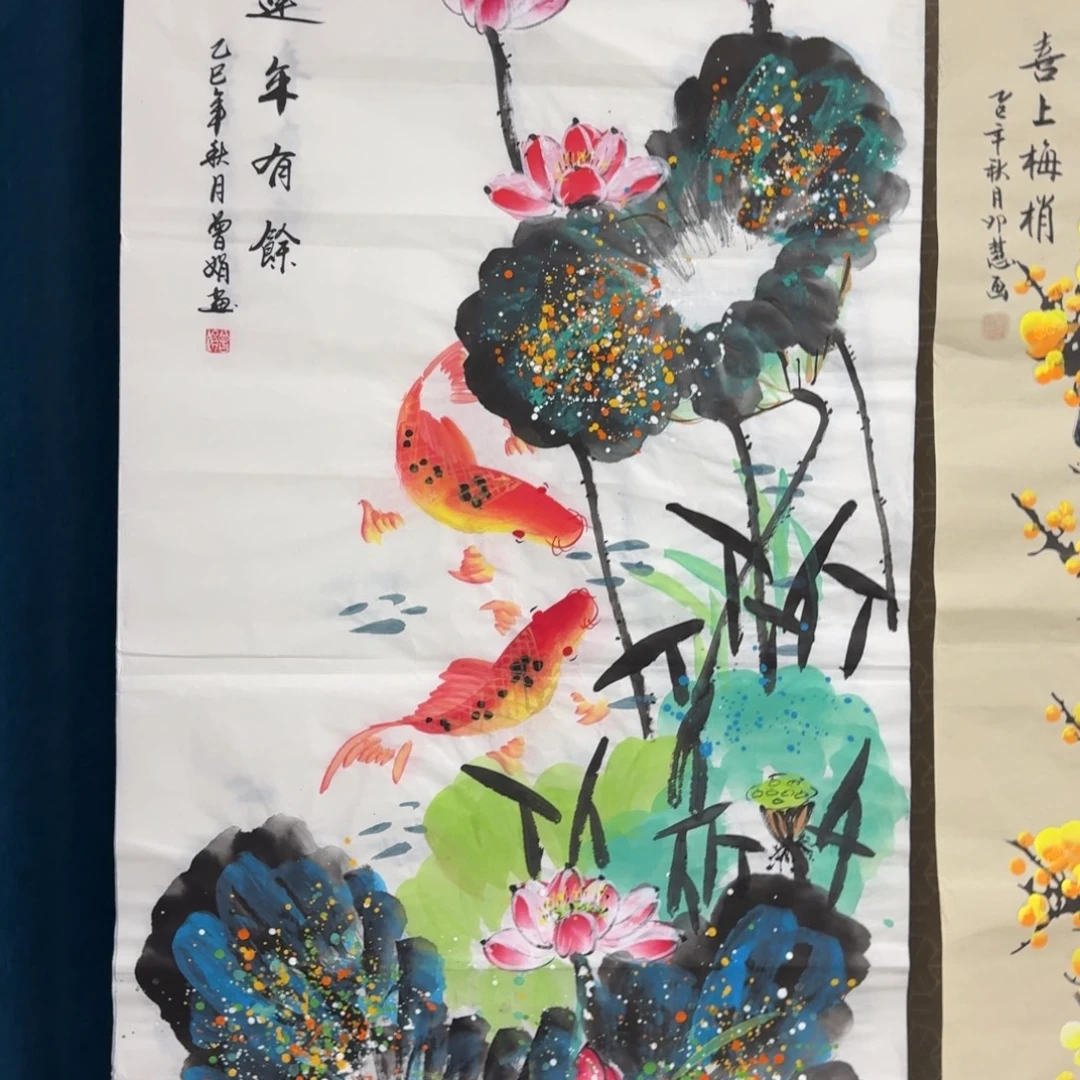 連年有餘
乙巳年秋月曾娟畫
喜上梅梢
乙巳年秋月慧画